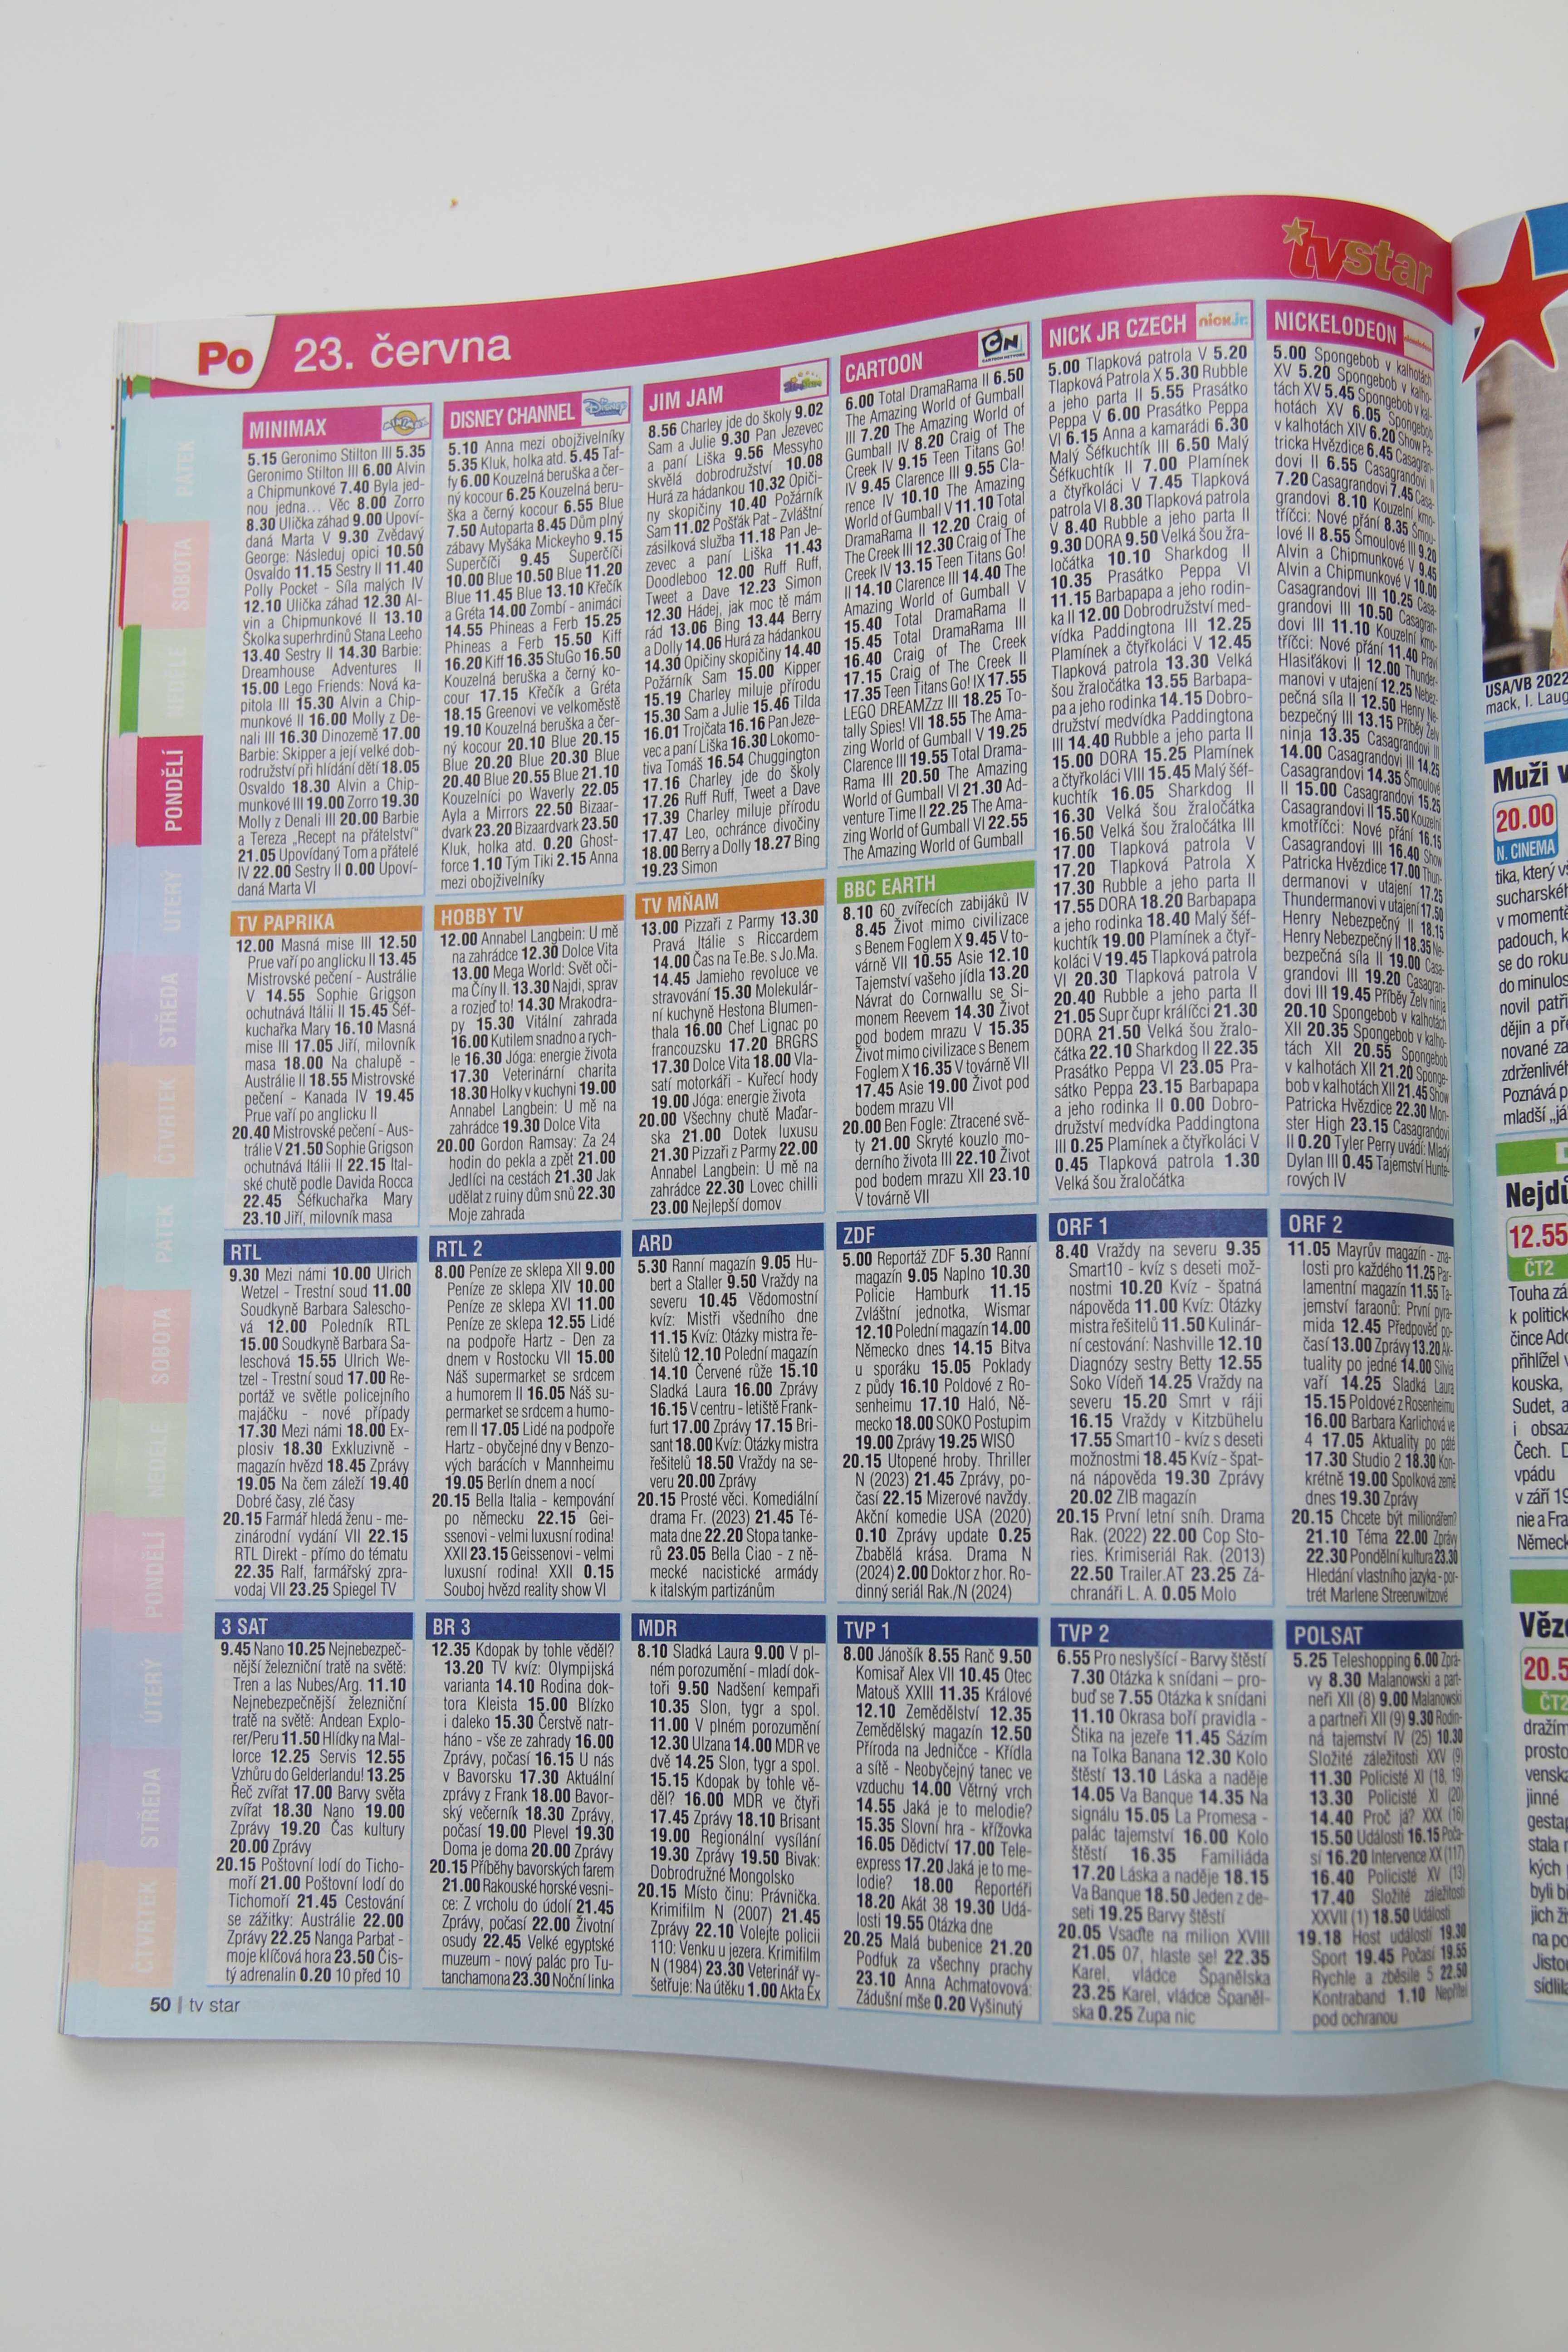 tvstar
Po 23. června
MINIMAX
5.15 Geronimo Stilton III 5.35
Geronimo Stilton III 6.00 Alvin
a Chipmunkové 7.40 Byla jed-
nou jedna... Věc 8.00 Zorro
8.30 Ulička záhad 9.00 Upoví-
daná Marta V 9.30 Zvědavý
George: Následuj opici 10.50
Osvaldo 11.15 Sestry II 11.40
Polly Pocket - Síla malých IV
12.10 Ulička záhad 12.30 Al-
vin a Chipmunkové II 13.10
Školka superhrdinů Stana Leeho
13.40 Sestry II 14.30 Barbie:
Dreamhouse Adventures II
15.00 Lego Friends: Nová ka-
pitola III 15.30 Alvin a Chip-
munkové II 16.00 Molly z De-
nali III 16.30 Dinozemě 17.00
Barbie: Skipper a její velké dob-
rodružství při hlídání dětí 18.05
Osvaldo 18.30 Alvin a Chip-
munkové III 19.00 Zorro 19.30
Molly z Denali III 20.00 Barbie
a Tereza „Recept na přátelství“
21.05 Upovídaný Tom a přátelé
IV 22.00 Sestry II 0.00 Upoví-
daná Marta VI
DISNEY CHANNEL
5.10 Anna mezi obojživelníky
5.35 Kluk, holka atd. 5.45 Taf-
fy 6.00 Kouzelná beruška a čer-
ný kocour 6.25 Kouzelná beru-
ška a černý kocour 6.55 Blue
7.50 Autoparta 8.45 Dům plný
zábavy Myšáka Mickeyho 9.15
Superčíči 9.45 Superčíči
10.00 Blue 10.50 Blue 11.20
Blue 11.45 Blue 13.10 Křečík
a Gréta 14.00 Zombí - animáci
14.55 Phineas a Ferb 15.25
Phineas a Ferb 15.50 Kiff
16.20 Kiff 16.35 StuGo 16.50
Kouzelná beruška a černý ko-
cour 17.15 Křečík a Gréta
18.15 Greenovi ve velkoměstě
19.10 Kouzelná beruška a čer-
ný kocour 20.10 Blue 20.15
Blue 20.20 Blue 20.30 Blue
20.40 Blue 20.55 Blue 21.10
Kouzelníci po Waverly 22.05
Ayla a Mirrors 22.50 Bizaar-
dvark 23.20 Bizaardvark 23.50
Kluk, holka atd. 0.20 Ghost-
force 1.10 Tým Tiki 2.15 Anna
mezi obojživelníky
JIM JAM
8.56 Charley jde do školy 9.02
Sam a Julie 9.30 Pan Jezevec
a paní Liška 9.56 Messyho
skvělá dobrodružství 10.08
Hurá za hádankou 10.32 Opiči-
ny skopičiny 10.40 Požárník
Sam 11.02 Pošťák Pat - Zvláštní
zásilková služba 11.18 Pan Je-
zevec a paní Liška 11.43
Doodleboo 12.00 Ruff Ruff,
Tweet a Dave 12.23 Simon
12.30 Hádej, jak moc tě mám
rád 13.06 Bing 13.44 Berry
a Dolly 14.06 Hurá za hádankou
14.30 Opičiny skopičiny 14.40
Požárník Sam 15.00 Kipper
15.19 Charley miluje přírodu
15.30 Sam a Julie 15.46 Tilda
16.01 Trojčata 16.16 Pan Jeze-
vec a paní Liška 16.30 Lokomo-
tiva Tomáš 16.54 Chuggington
17.16 Charley jde do školy
17.26 Ruff Ruff, Tweet a Dave
17.39 Charley miluje přírodu
17.47 Leo, ochránce divočiny
18.00 Berry a Dolly 18.27 Bing
19.23 Simon
CARTOON
6.00 Total DramaRama II 6.50
The Amazing World of Gumball
III 7.20 The Amazing World of
Gumball IV 8.20 Craig of The
Creek IV 9.15 Teen Titans Go!
IV 9.45 Clarence III 9.55 Cla-
rence IV 10.10 The Amazing
World of Gumball V 11.10 Total
DramaRama II 12.20 Craig of
The Creek III 12.30 Craig of The
Creek IV 13.15 Teen Titans Go!
II 14.10 Clarence III 14.40 The
Amazing World of Gumball V
15.40 Total DramaRama II
15.45 Total DramaRama III
16.40 Craig of The Creek
17.15 Craig of The Creek II
17.35 Teen Titans Go! IX 17.55
LEGO DREAMZzz III 18.25 To-
tally Spies! VII 18.55 The Ama-
zing World of Gumball V 19.25
Clarence III 19.55 Total Drama-
Rama III 20.50 The Amazing
World of Gumball VI 21.30 Ad-
venture Time II 22.25 The Ama-
zing World of Gumball VI 22.55
The Amazing World of Gumball
NICK JR CZECH
5.00 Tlapková patrola V 5.20
Tlapková Patrola X 5.30 Rubble
a jeho parta II 5.55 Prasátko
Peppa V 6.00 Prasátko Peppa
VI 6.15 Anna a kamarádi 6.30
Malý Šéfkuchtík III 6.50 Malý
Šéfkuchtík II 7.00 Plamínek
a čtyřkoláci V 7.45 Tlapková
patrola VI 8.30 Tlapková patrola
V 8.40 Rubble a jeho parta II
9.30 DORA 9.50 Velká šou žra-
ločátka 10.10 Sharkdog II
10.35 Prasátko Peppa VI
11.15 Barbapapa a jeho rodin-
ka II 12.00 Dobrodružství med-
vídka Paddingtona III 12.25
Plamínek a čtyřkoláci V 12.45
Tlapková patrola 13.30 Velká
šou žraločátka 13.55 Barbapa-
pa a jeho rodinka 14.15 Dobro-
družství medvídka Paddingtona
III 14.40 Rubble a jeho parta II
15.00 DORA 15.25 Plamínek
a čtyřkoláci VIII 15.45 Malý šéf-
kuchtík 16.05 Sharkdog II
16.30 Velká šou žraločátka
16.50 Velká šou žraločátka III
17.00 Tlapková patrola V
17.20 Tlapková Patrola X
17.30 Rubble a jeho parta II
17.55 DORA 18.20 Barbapapa
a jeho rodinka 18.40 Malý šéf-
kuchtík 19.00 Plamínek a čtyř-
koláci V 19.45 Tlapková patrola
VI 20.30 Tlapková patrola V
20.40 Rubble a jeho parta II
21.05 Supr čupr králíčci 21.30
DORA 21.50 Velká šou žralo-
čátka 22.10 Sharkdog II 22.35
Prasátko Peppa VI 23.05 Pra-
sátko Peppa 23.15 Barbapapa
a jeho rodinka II 0.00 Dobro-
družství medvídka Paddingtona
III 0.25 Plamínek a čtyřkoláci V
0.45 Tlapková patrola 1.30
Velká šou žraločátka
NICKELODEON
5.00 Spongebob v kalhotách
XV 5.20 Spongebob v kalho-
tách XV 5.45 Spongebob v kal-
hotách XV 6.05 Spongebob
v kalhotách XIV 6.20 Show Pa-
tricka Hvězdice 6.45 Casagran-
dovi II 6.55 Casagrandovi II
7.20 Casagrandovi 7.45 Casa-
grandovi 8.10 Kouzelní kmo-
tříčci: Nové přání 8.35 Šmou-
lové II 8.55 Šmoulové III 9.20
Alvin a Chipmunkové V 9.45
Alvin a Chipmunkové V 10.00
Casagrandovi III 10.25 Casa-
grandovi III 10.50 Casagran-
dovi III 11.10 Kouzelní kmo-
tříčci: Nové přání 11.40 Praví
Hlasiťákovi II 12.00 Thunder-
manovi v utajení 12.25 Nebez-
pečná síla II 12.50 Henry Ne-
bezpečný III 13.15 Příběhy Želv
ninja 13.35 Casagrandovi III
14.00 Casagrandovi III 14.25
Casagrandovi 14.35 Šmoulové
II 15.00 Casagrandovi 15.25
Casagrandovi II 15.50 Kouzelní
kmotříčci: Nové přání 16.15
Casagrandovi III 16.40 Show
Patricka Hvězdice 17.00 Thun-
dermanovi v utajení 17.25
Thundermanovi v utajení 17.50
Henry Nebezpečný II 18.15
Henry Nebezpečný II 18.35 Ne-
bezpečná síla II 19.00 Casa-
grandovi III 19.20 Casagran-
dovi III 19.45 Příběhy Želv ninja
20.10 Spongebob v kalhotách
XII 20.35 Spongebob v kalho-
tách XII 20.55 Spongebob
v kalhotách XII 21.20 Sponge-
bob v kalhotách XII 21.45 Show
Patricka Hvězdice 22.30 Mon-
ster High 23.15 Casagrandovi
II 0.20 Tyler Perry uvádí: Mladý
Dylan III 0.45 Tajemství Hunte-
rových IV
TV PAPRIKA
12.00 Masná mise III 12.50
Prue vaří po anglicku II 13.45
Mistrovské pečení - Austrálie
V 14.55 Sophie Grigson
ochutnává Itálii II 15.45 Šéf-
kuchařka Mary 16.10 Masná
mise III 17.05 Jiří, milovník
masa 18.00 Na chalupě -
Austrálie II 18.55 Mistrovské
pečení - Kanada IV 19.45
Prue vaří po anglicku II
20.40 Mistrovské pečení - Aus-
trálie V 21.50 Sophie Grigson
ochutnává Itálii II 22.15 Ital-
ské chutě podle Davida Rocca
22.45 Šéfkuchařka Mary
23.10 Jiří, milovník masa
HOBBY TV
12.00 Annabel Langbein: U mě
na zahrádce 12.30 Dolce Vita
13.00 Mega World: Svět oči-
ma Číny II. 13.30 Najdi, sprav
a rozjeď to! 14.30 Mrakodra-
py 15.30 Vitální zahrada
16.00 Kutilem snadno a rych-
le 16.30 Jóga: energie života
17.30 Veterinární charita
18.30 Holky v kuchyni 19.00
Annabel Langbein: U mě na
zahrádce 19.30 Dolce Vita
20.00 Gordon Ramsay: Za 24
hodin do pekla a zpět 21.00
Jedlíci na cestách 21.30 Jak
udělat z ruiny dům snů 22.30
Moje zahrada
TV MŇAM
13.00 Pizzaři z Parmy 13.30
Pravá Itálie s Riccardem
14.00 Čas na Te.Be. s Jo.Ma.
14.45 Jamieho revoluce ve
stravování 15.30 Molekulár-
ní kuchyně Hestona Blumen-
thala 16.00 Chef Lignac po
francouzsku 17.20 BRGRS
17.30 Dolce Vita 18.00 Vla-
satí motorkáři - Kuřecí hody
19.00 Jóga: energie života
20.00 Všechny chutě Maďar-
ska 21.00 Dotek luxusu
21.30 Pizzaři z Parmy 22.00
Annabel Langbein: U mě na
zahrádce 22.30 Lovec chilli
23.00 Nejlepší domov
BBC EARTH
8.10 60 zvířecích zabijáků IV
8.45 Život mimo civilizace
s Benem Foglem X 9.45 V to-
várně VII 10.55 Asie 12.10
Tajemství vašeho jídla 13.20
Návrat do Cornwallu se Si-
monem Reevem 14.30 Život
pod bodem mrazu V 15.35
Život mimo civilizace s Benem
Foglem X 16.35 V továrně VII
17.45 Asie 19.00 Život pod
bodem mrazu VII
20.00 Ben Fogle: Ztracené svě-
ty 21.00 Skryté kouzlo mo-
derního života III 22.10 Život
pod bodem mrazu XII 23.10
V továrně VII
RTL
9.30 Mezi námi 10.00 Ulrich
Wetzel - Trestní soud 11.00
Soudkyně Barbara Salescho-
vá 12.00 Poledník RTL
15.00 Soudkyně Barbara Sa-
leschová 15.55 Ulrich We-
tzel - Trestní soud 17.00 Re-
portáž ve světle policejního
majáčku - nové případy
17.30 Mezi námi 18.00 Ex-
plosiv 18.30 Exkluzivně -
magazín hvězd 18.45 Zprávy
19.05 Na čem záleží 19.40
Dobré časy, zlé časy
20.15 Farmář hledá ženu - me-
zinárodní vydání VII 22.15
RTL Direkt - přímo do tématu
22.35 Ralf, farmářský zpra-
vodaj VII 23.25 Spiegel TV
RTL 2
8.00 Peníze ze sklepa XII 9.00
Peníze ze sklepa XIV 10.00
Peníze ze sklepa XVI 11.00
Peníze ze sklepa 12.55 Lidé
na podpoře Hartz - Den za
dnem v Rostocku VII 15.00
Náš supermarket se srdcem
a humorem II 16.05 Náš su-
permarket se srdcem a humo-
rem II 17.05 Lidé na podpoře
Hartz - obyčejné dny v Benzo-
vých barácích v Mannheimu
19.05 Berlín dnem a nocí
20.15 Bella Italia - kempování
po německu 22.15 Gei-
ssenovi - velmi luxusní rodina!
XXII 23.15 Geissenovi - velmi
luxusní rodina! XXII 0.15
Souboj hvězd reality show VI
ARD
5.30 Ranní magazín 9.05 Hu-
bert a Staller 9.50 Vraždy na
severu 10.45 Vědomostní
kvíz: Mistři všedního dne
11.15 Kvíz: Otázky mistra ře-
šitelů 12.10 Polední magazín
14.10 Červené růže 15.10
Sladká Laura 16.00 Zprávy
16.15 V centru - letiště Frank-
furt 17.00 Zprávy 17.15 Bri-
sant 18.00 Kvíz: Otázky mistra
řešitelů 18.50 Vraždy na se-
veru 20.00 Zprávy
20.15 Prosté věci. Komediální
drama Fr. (2023) 21.45 Té-
mata dne 22.20 Stopa tanke-
rů 23.05 Bella Ciao - z ně-
mecké nacistické armády
k italským partizánům
ZDF
5.00 Reportáž ZDF 5.30 Ranní
magazín 9.05 Naplno 10.30
Policie Hamburk 11.15
Zvláštní jednotka, Wismar
12.10 Polední magazín 14.00
Německo dnes 14.15 Bitva
u sporáku 15.05 Poklady
z půdy 16.10 Poldové z Ro-
senheimu 17.10 Haló, Ně-
mecko 18.00 SOKO Postupim
19.00 Zprávy 19.25 WISO
20.15 Utopené hroby. Thriller
N (2023) 21.45 Zprávy, po-
časí 22.15 Mizerové navždy.
Akční komedie USA (2020)
0.10 Zprávy update 0.25
Zbabělá krása. Drama N
(2024) 2.00 Doktor z hor. Ro-
dinný seriál Rak./N (2024)
ORF 1
8.40 Vraždy na severu 9.35
Smart10 - kvíz s deseti mož-
nostmi 10.20 Kvíz - špatná
nápověda 11.00 Kvíz: Otázky
mistra řešitelů 11.50 Kulinár-
ní cestování: Nashville 12.10
Diagnózy sestry Betty 12.55
Soko Vídeň 14.25 Vraždy na
severu 15.20 Smrt v ráji
16.15 Vraždy v Kitzbühelu
17.55 Smart10 - kvíz s deseti
možnostmi 18.45 Kvíz - špat-
ná nápověda 19.30 Zprávy
20.02 ZIB magazín
20.15 První letní sníh. Drama
Rak. (2022) 22.00 Cop Sto-
ries. Krimiseriál Rak. (2013)
22.50 Trailer.AT 23.25 Zá-
chranáři L. A. 0.05 Molo
ORF 2
11.05 Mayrův magazín - zna-
losti pro každého 11.25 Par-
lamentní magazín 11.55 Ta-
jemství faraonů: První pyra-
mida 12.45 Předpověď po-
časí 13.00 Zprávy 13.20 Ak-
tuality po jedné 14.00 Silvia
vaří 14.25 Sladká Laura
15.15 Poldové z Rosenheimu
16.00 Barbara Karlichová ve
4 17.05 Aktuality po páté
17.30 Studio 2 18.30 Kon-
krétně 19.00 Spolková země
dnes 19.30 Zprávy
20.15 Chcete být milionářem?
21.10 Téma 22.00 Zprávy
22.30 Pondělní kultura 23.30
Hledání vlastního jazyka - por-
trét Marlene Streeruwitzové
3 SAT
9.45 Nano 10.25 Nejnebezpeč-
nější železniční tratě na světě:
Tren a las Nubes/Arg. 11.10
Nejnebezpečnější železniční
tratě na světě: Andean Explo-
rer/Peru 11.50 Hlídky na Mal-
lorce 12.25 Servis 12.55
Vzhůru do Gelderlandu! 13.25
Řeč zvířat 17.00 Barvy světa
zvířat 18.30 Nano 19.00
Zprávy 19.20 Čas kultury
20.00 Zprávy
20.15 Poštovní lodí do Ticho-
moří 21.00 Poštovní lodí do
Tichomoří 21.45 Cestování
se zážitky: Austrálie 22.00
Zprávy 22.25 Nanga Parbat -
moje klíčová hora 23.50 Čis-
tý adrenalin 0.20 10 před 10
BR 3
12.35 Kdopak by tohle věděl?
13.20 TV kvíz: Olympijská
varianta 14.10 Rodina dok-
tora Kleista 15.00 Blízko
i daleko 15.30 Čerstvě natr-
háno - vše ze zahrady 16.00
Zprávy, počasí 16.15 U nás
v Bavorsku 17.30 Aktuální
zprávy z Frank 18.00 Bavor-
ský večerník 18.30 Zprávy,
počasí 19.00 Plevel 19.30
Doma je doma 20.00 Zprávy
20.15 Příběhy bavorských farem
21.00 Rakouské horské vesni-
ce: Z vrcholu do údolí 21.45
Zprávy, počasí 22.00 Životní
osudy 22.45 Velké egyptské
muzeum - nový palác pro Tu-
tanchamona 23.30 Noční linka
MDR
8.10 Sladká Laura 9.00 V pl-
ném porozumění - mladí dok-
toři 9.50 Nadšení kempaři
10.35 Slon, tygr a spol.
11.00 V plném porozumění
12.30 Ulzana 14.00 MDR ve
dvě 14.25 Slon, tygr a spol.
15.15 Kdopak by tohle vě-
děl? 16.00 MDR ve čtyři
17.45 Zprávy 18.10 Brisant
19.00 Regionální vysílání
19.30 Zprávy 19.50 Bivak:
Dobrodružné Mongolsko
20.15 Místo činu: Právnička.
Krimifilm N (2007) 21.45
Zprávy 22.10 Volejte policii
110: Venku u jezera. Krimifilm
N (1984) 23.30 Veterinář vy-
šetřuje: Na útěku 1.00 Akta Ex
TVP 1
8.00 Jánošík 8.55 Ranč 9.50
Komisař Alex VII 10.45 Otec
Matouš XXIII 11.35 Králové
12.10 Zemědělství 12.35
Zemědělský magazín 12.50
Příroda na Jedničce - Křídla
a sítě - Neobyčejný tanec ve
vzduchu 14.00 Větrný vrch
14.55 Jaká je to melodie?
15.35 Slovní hra - křížovka
16.05 Dědictví 17.00 Tele-
express 17.20 Jaká je to me-
lodie? 18.00 Reportéři
18.20 Akát 38 19.30 Udá-
losti 19.55 Otázka dne
20.25 Malá bubenice 21.20
Podfuk za všechny prachy
23.10 Anna Achmatovová:
Zádušní mše 0.20 Vyšinutý
TVP 2
6.55 Pro neslyšící - Barvy štěstí
7.30 Otázka k snídani – pro-
buď se 7.55 Otázka k snídani
11.10 Okrasa boří pravidla -
Štika na jezeře 11.45 Sázím
na Tolka Banana 12.30 Kolo
štěstí 13.10 Láska a naděje
14.05 Va Banque 14.35 Na
signálu 15.05 La Promesa -
palác tajemství 16.00 Kolo
štěstí 16.35 Familiáda
17.20 Láska a naděje 18.15
Va Banque 18.50 Jeden z de-
seti 19.25 Barvy štěstí
20.05 Vsaďte na milion XVIII
21.05 07, hlaste se! 22.35
Karel, vládce Španělska
23.25 Karel, vládce Španěl-
ska 0.25 Zupa nic
POLSAT
5.25 Teleshopping 6.00 Zprá-
vy 8.30 Malanowski a part-
neři XII (8) 9.00 Malanowski
a partneři XII (9) 9.30 Rodin-
ná tajemství IV (25) 10.30
Složité záležitosti XXV (9)
11.30 Policisté XI (18, 19)
13.30 Policisté XI (20)
14.40 Proč já? XXX (16)
15.50 Události 16.15 Poča-
sí 16.20 Intervence XX (117)
16.40 Policisté XV (13)
17.40 Složité záležitosti
XXVII (1) 18.50 Události
19.18 Host událostí 19.30
Sport 19.45 Počasí 19.55
Rychle a zběsile 5 22.50
Kontraband 1.10 Nepřítel
pod ochranou
PÁTEK
SOBOTA
NEDĚLE
PONDĚLÍ
ÚTERÝ
STŘEDA
ČTVRTEK
PÁTEK
SOBOTA
NEDĚLE
PONDĚLÍ
ÚTERÝ
STŘEDA
ČTVRTEK
50 | tv star
USA/VB 2022
mack, I. Laug
Muži v
20.00
N. CINEMA
tika, který v
sucharskéh
v momentě
padouch, k
se do roku
do minulos
novil patři
dějin a pře
nované za
zdrženlivéh
Poznává p
mladší „já
Nejdů
12.55
ČT2
Touha zá
k politick
čince Ado
přihlížel v
kouska,
Sudet, a
i obsaz
Čech. D
vpádu
v září 19
nie a Fra
Německ
Věze
20.5
ČT2
dražím
prosto
venska
jinné
gestap
stala n
kých
byli bi
jich ži
na po
Jisto
sídlil